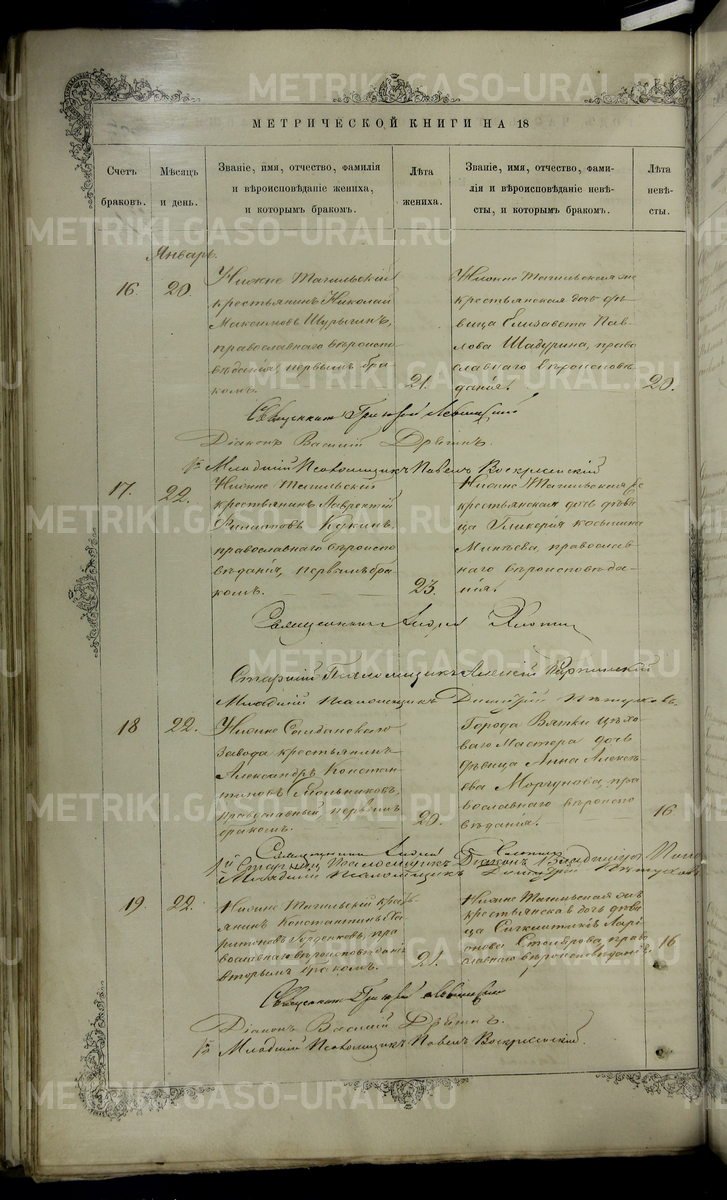 МЕТРИЧЕСКОЙ КНИГИ НА 18
Счетъ браковъ.
Мѣсяцъ и день.
Званіе, имя, отчество, фамилія
и вѣроисповѣданіе жениха,
и которымъ бракомъ.
Лѣта жениха.
Званіе, имя, отчество, фами-
лія и вѣроисповѣданіе невѣ-
сты, и которымъ бракомъ.
Лѣта невѣ-
сты.
Январь.
16. 20.
Нижне Тагильскій
крестьянинъ Николай
Максимовъ Шурыгинъ,
православнаго вѣроиспо-
вѣданія, первымъ бра-
комъ.
21.
Нижне Тагильская
крестьянская дочь дѣ-
вица Елизавета Пав-
лова Шадурина, право
славнаго вѣроисповѣ-
данія.
20.
Священникъ Григорій Левицкій
Діаконъ Василій
Младшій Псаломщикъ Павелъ Воскресенскій
17. 22.
Нижне Тагильскій
крестьянинъ Лаврентій
православнаго вѣроиспо
вѣданія, первымъ бра-
комъ.
23.
Нижне Тагильская
крестьянская дочь дѣви-
ца Гликерія Косьмина
Минѣева, православ-
наго вѣроисповѣда-
нія.
Священникъ Андрей
Старшій Псаломщикъ Алексій
Младшій Псаломщикъ Димитрій Пѣтуховъ
18 22.
Нижне Салдинскаго
завода крестьянинъ
Александръ Констан-
тиновъ
православный первымъ
бракомъ.
20.
Города Вятки цѣхо-
ваго Мастера дочь
дѣвица Анна Алексѣ-
ева Моргунова, пра
вославнаго вѣроиспо
вѣданія.
16
Священникъ Андрей
Старшій Псаломщикъ Діаконъ
Младшій Псаломщикъ Димитрій Пѣтуховъ
19. 22.
Нижне Тагильскій кресть-
янинъ Константинъ Ха-
ритоновъ пра
вославнаго вѣроисповѣданія
вторымъ бракомъ.
21.
Нижне Тагильская
крестьянская дочь дѣви-
ца Лари-
онова право
славнаго вѣроисповѣданія
16
Священникъ Григорій Левицкій
Діаконъ Василій
Младшій Псаломщикъ Павелъ Воскресенскій.
METRIKI.GASO-URAL.RU